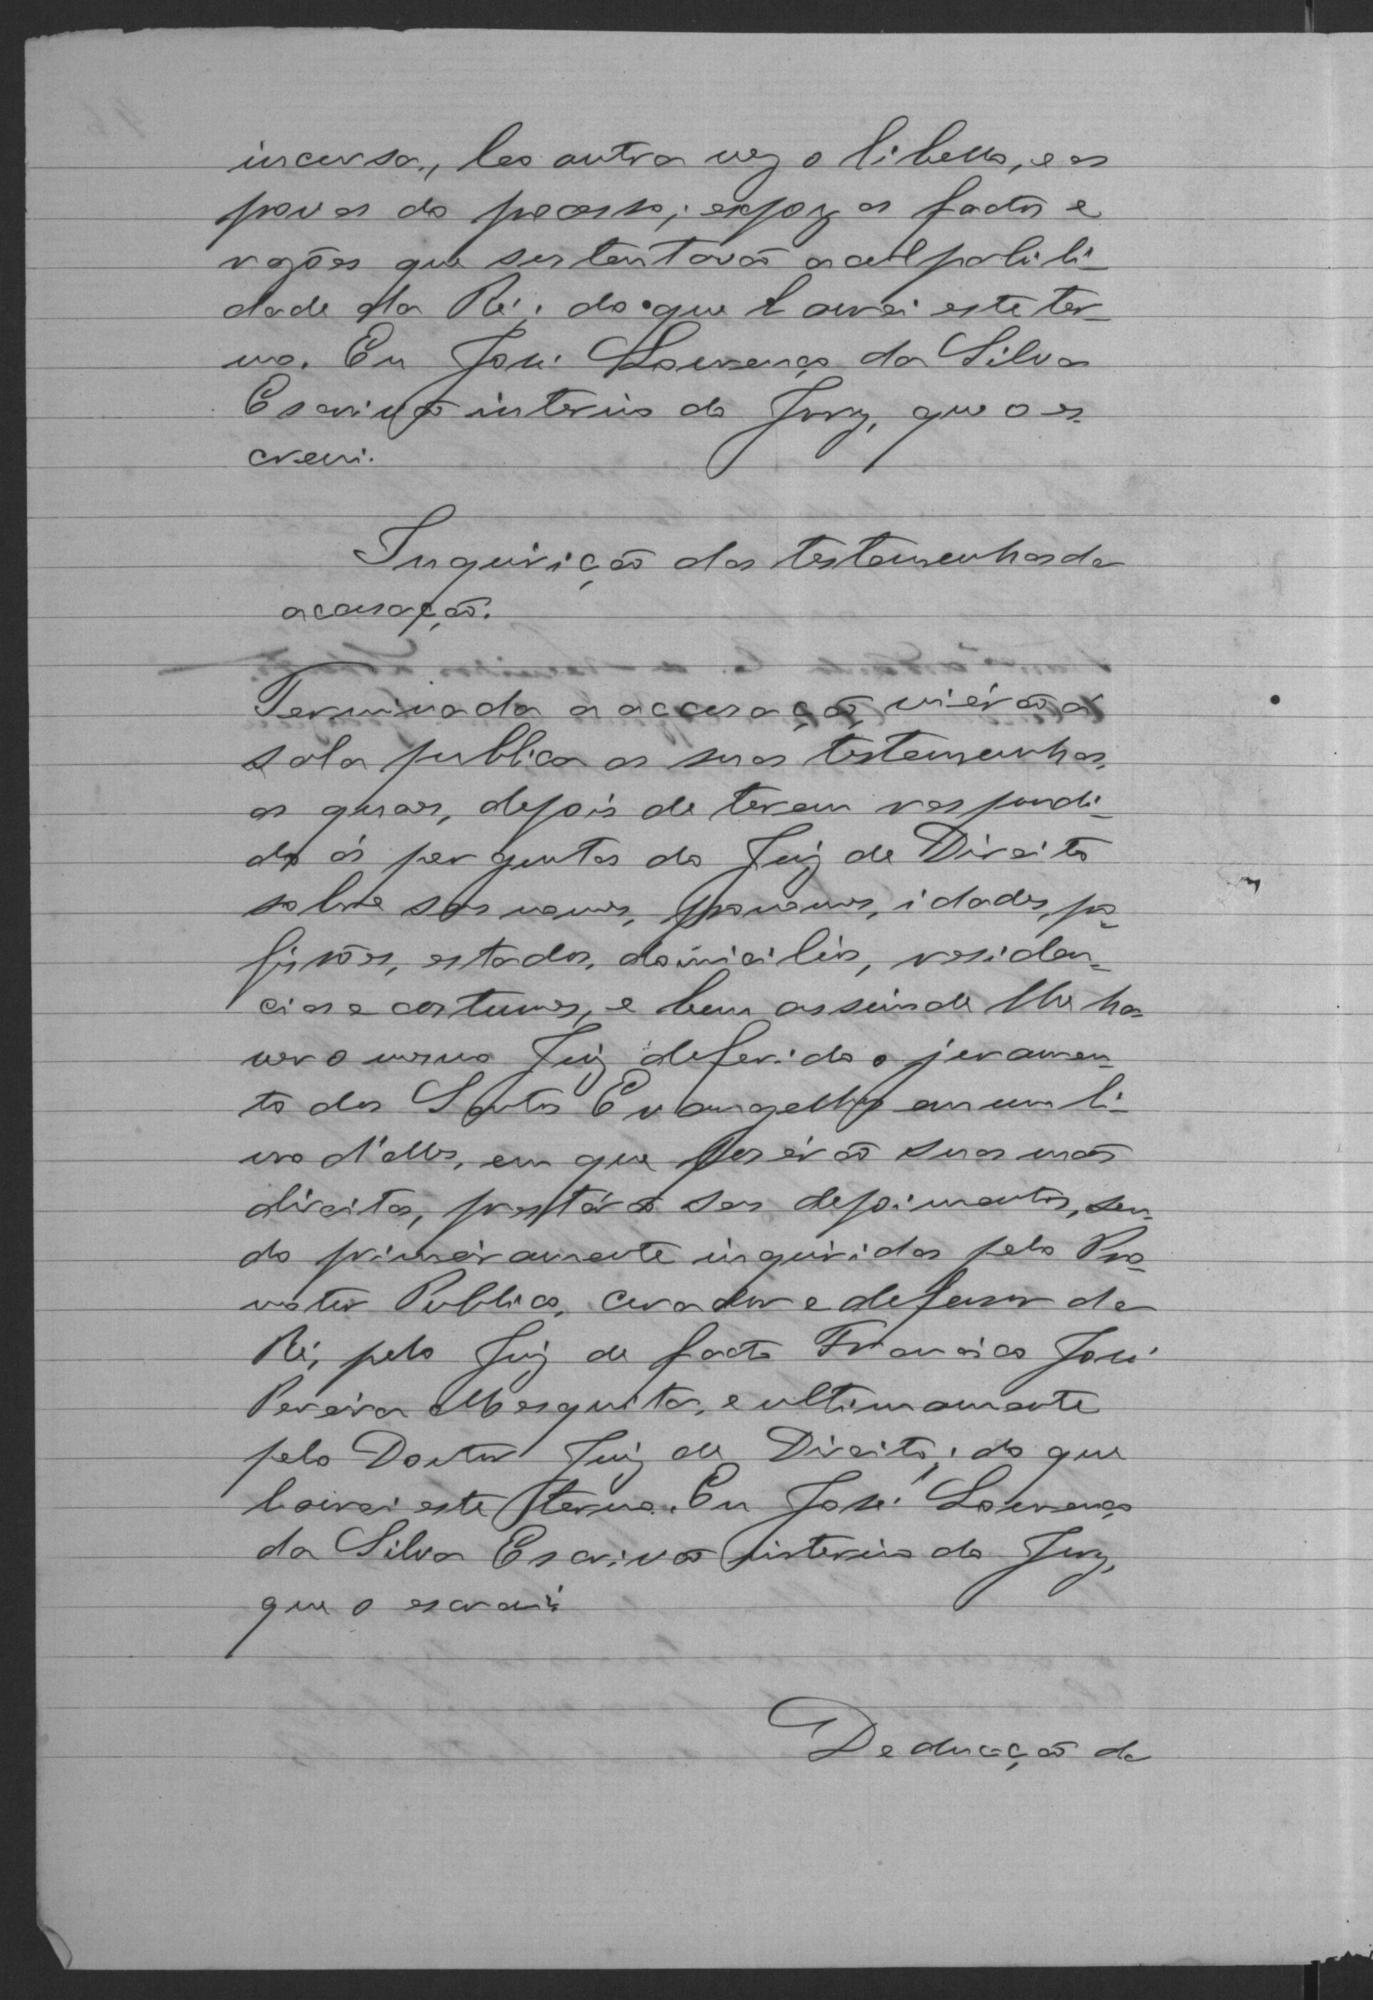 incursa, leo outra vez o libello, e as
provas do processo; expoz os factos e
rasões que sustentavão a culpabili-
dade da Ré; do que lavrei este ter-
mo. Eu José Lourenço da Silva
Escrivão interino do Jury, que o es-
crevi.
Inquirição das testemunhas da
acusação.
Terminada a accusação, vierão á
sala publica as suas testemunhas,
as quaes, depois de terem respondi-
do ás perguntas do Juiz de Direito
sobre seos nomes, pronomes, idades, pro-
fissões, estados, domicilios, residen-
cias e costumes, e bem assim de lhe ha-
ver o mesmo Juiz deferido o juramen-
to dos Santos Evangelhos em um li-
vro d'elles, em que poserão suas mãos
direitas, prestárão seos depoimentos, sen-
do primeiramente inquiridas pelo Pro-
motor Publico, curador e defensor da
Ré, pelo Juiz de facto Francisco José
Pereira Mesquita, e ultimamente
pelo Doutor Juiz de Direito; do que
lavrei este termo. Eu José Lourenço
da Silva Escrivão interino do Jury,
que o escrevi.
Deducção da